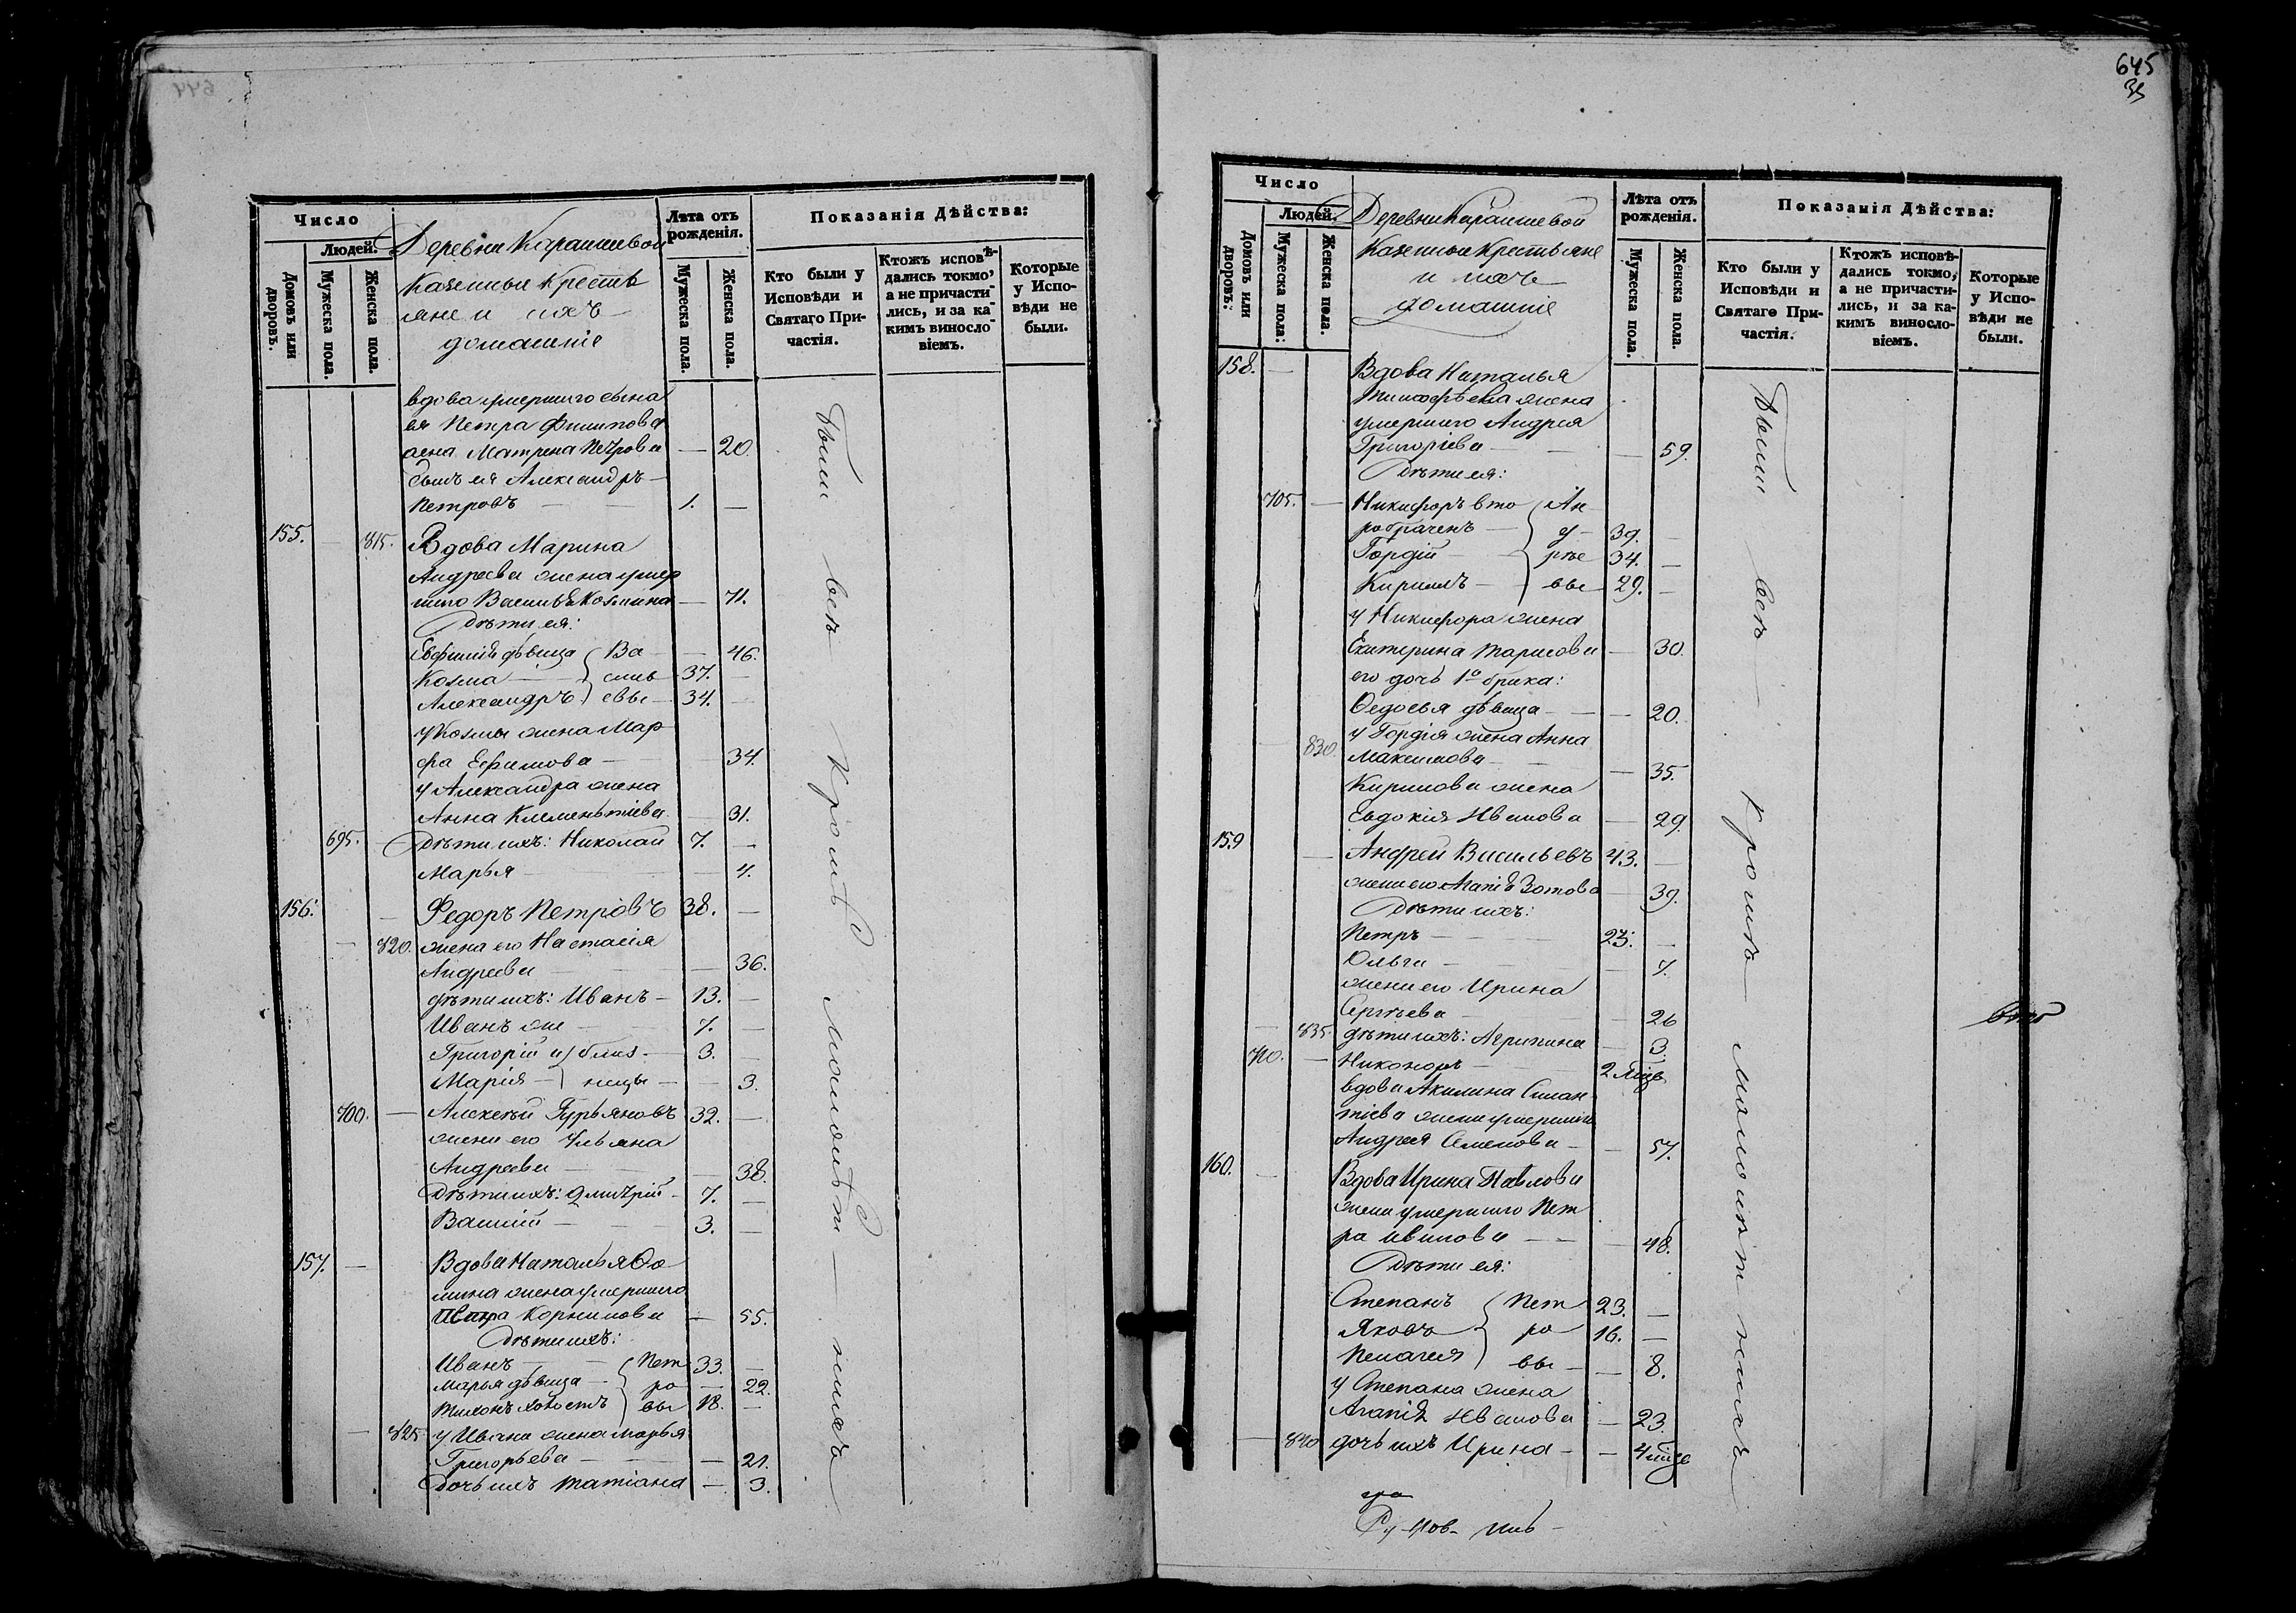 645
35
Число
Людей.
Домовъ или дворовъ.
Мужеска пола.
Женска пола.
Деревни Караишевой
Казенные Крестья
яне и ихъ
домашніе
Лѣта отъ рожденія.
Мужеска пола.
Женска пола.
Показанія Дѣйства:
Кто были у Исповѣди и Святаго Причастія.
Ктожъ исповѣдались токмо, а не причастились, и за какимъ винословіемъ.
Которые у Исповѣди не были.
вдова умершаго сына
ея Петра Филипова
жена Матрена Петрова — 20.
сынъ ея Александръ
Петровъ — 1. —
155. — 815. Вдова Марина
Андреева жена умер
шаго Василья Козмина — 71.
Дѣти ея:
Евфимія дѣвица Ва — 46.
Козма — силь 37. —
Александръ евы 34. —
у Козмы жена Мар
фа Ефимова — 34.
у Александра жена
Анна Клементіева — 31.
695. — Дѣти ихъ: Николай 7. —
Марья — 4.
156. — Федоръ Петровъ 38. —
— 820. жена его Настасія
Андреева — 36.
дѣти ихъ: Иванъ — 13. —
Иванъ же — 7. —
Григорій и близ — 3. —
Марія — нецы — 3.
700. — Алексѣй Гурьяновъ 32. —
жена его Ульяна
Андреева — 38.
Дѣти ихъ: Дмитрій — 7. —
Василій — 3. —
157. — Вдова Наталья Фо
мина жена умершаго
Корнилова — 55.
Дѣти ихъ:
Иванъ — Пет 33. —
Марья дѣвица — ро — 22.
Тихонъ холостъ вы 18. —
— 825 у Ивана жена Марья
Григорьева — 21.
Дочь ихъ Татіана — 3.
Были всѣ — кромѣ малолѣт — нихъ
Число
Людей.
Домовъ или дворовъ.
Мужеска пола.
Женска пола.
Деревни Караишевой
Казенные Крестьяне
и ихъ
домашніе
Лѣта отъ рожденія.
Мужеска пола.
Женска пола.
Показанія Дѣйства:
Кто были у Исповѣди и Святаго Причастія.
Ктожъ исповѣдались токмо, а не причастились, и за какимъ винословіемъ.
Которые у Исповѣди не были.
158. — Вдова Наталья
Тимофѣева жена
умершаго Андрея
Григоріева — 59.
Дѣти ея:
705. — Никифоръ вто Ан
робраченъ — д 39. —
Гордій — рѣе 34. —
Кирилъ — вы 29. —
у Никифора жена
Екатерина Тарасова — 30.
его дочь 1го брака:
Ѳедосья дѣвица — 20.
— 830 у Гордія жена Анна
Максимова — 35.
Кирилова жена
Евдокія Иванова — 29.
159 — Андрей Васильевъ 43. —
жена его Агапія Зотова — 39.
Дѣти ихъ:
Петръ — 23. —
Ольга — 7.
жена его Ирина
Сергѣева — 26
— 835. дѣти ихъ: Агрипина — 3.
710. — Никоноръ — 2 мѣс.
вдова Акилина Силан
тіева жена умершаго
Андрея Семенова — 57.
160. — Вдова Ирина Павлова
жена умершаго Пет
ра Иванова — 48.
Дѣти ея:
Степанъ Пет 23. —
Яковъ ро 16. —
Пелагея вы — 8.
у Степана жена
Агапія Иванова — 23.
— 840 дочь ихъ Ирина — 4 мѣс
Были всѣ — кромѣ — малолѣт нихъ